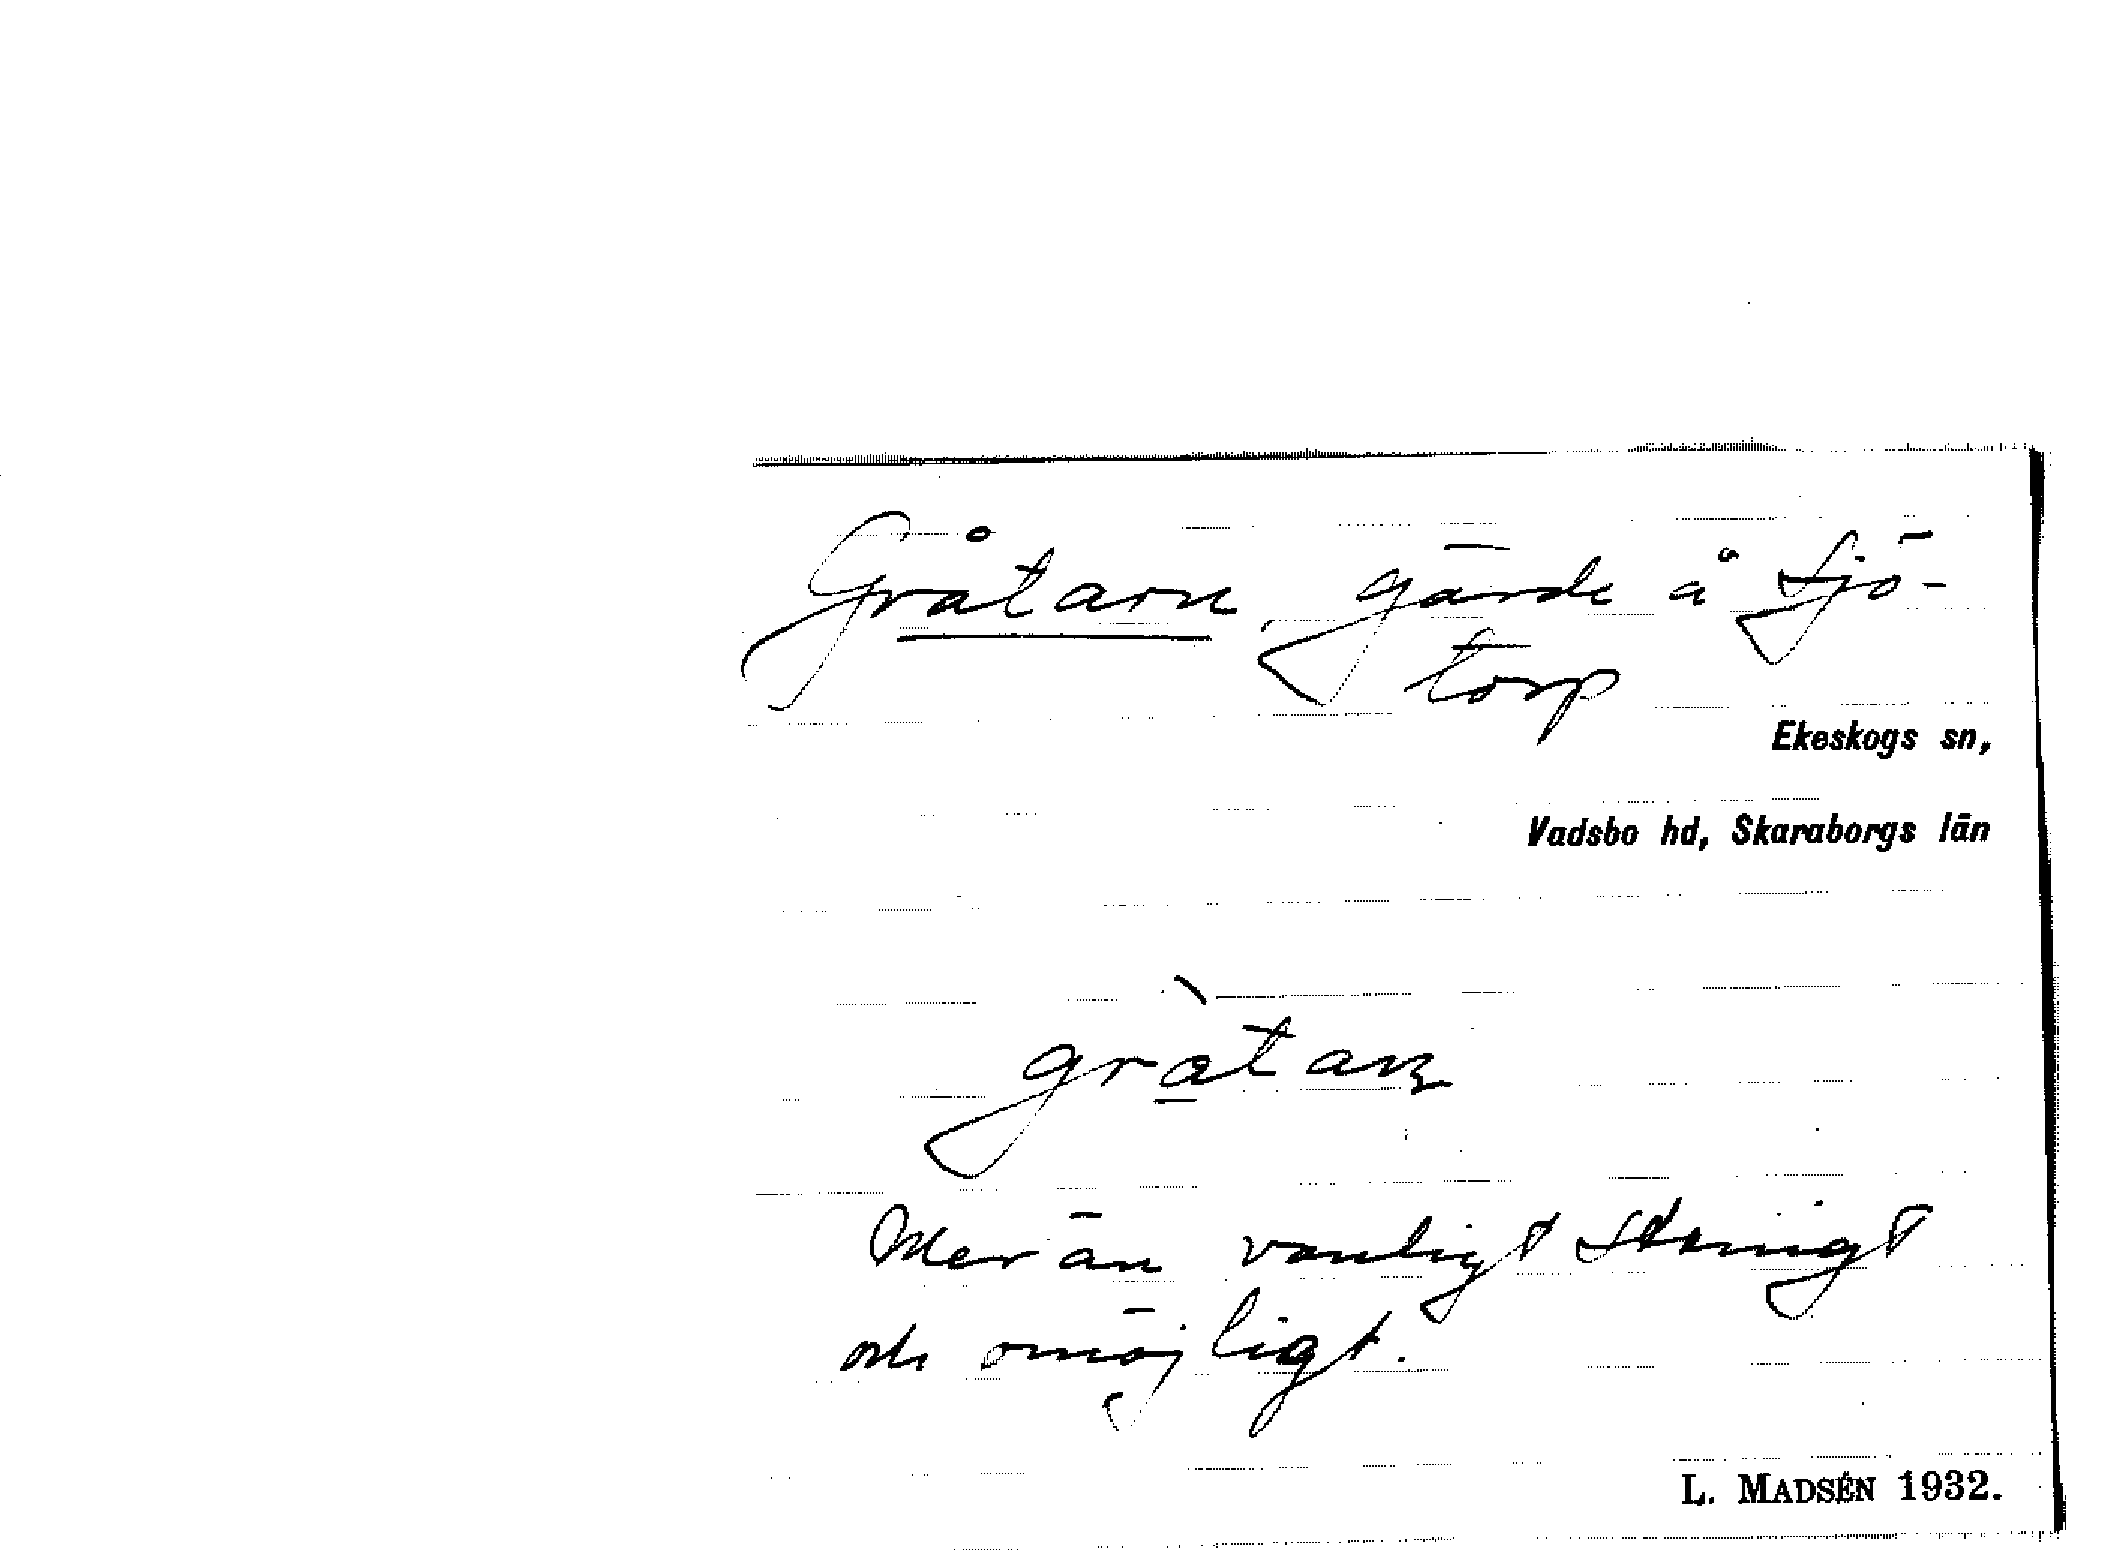 Gråtarn, gärde å Sjö-
torp
Ekeskogs sn,
Vadsbo hd, Skaraborgs län
gràtaɳ
Mer än vanligt stenigt
och omöjligt.
L. MADSÉN 1932.